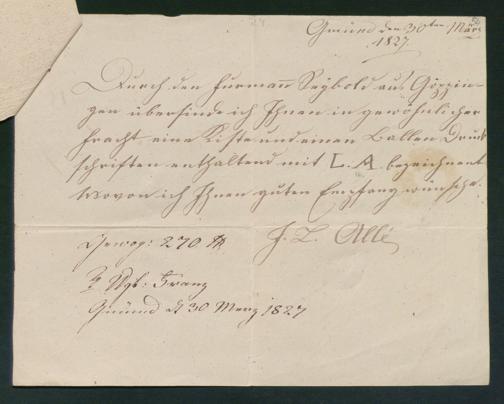 Gmünd den 30ten März
1827.
Durch den Furmann Seybold aus Göppin-
gen übersende ich Ihnen in gewöhnlicher
Fracht eine Kiste und einen Ballen Druck
schriften enthaltend mit L. A. bezeichnet
wovon ich Ihnen guten Empfang wünsche.
J. L. Allé
Gewog: 270 ℔
Franz
Gmünd d 30 Merz 1827